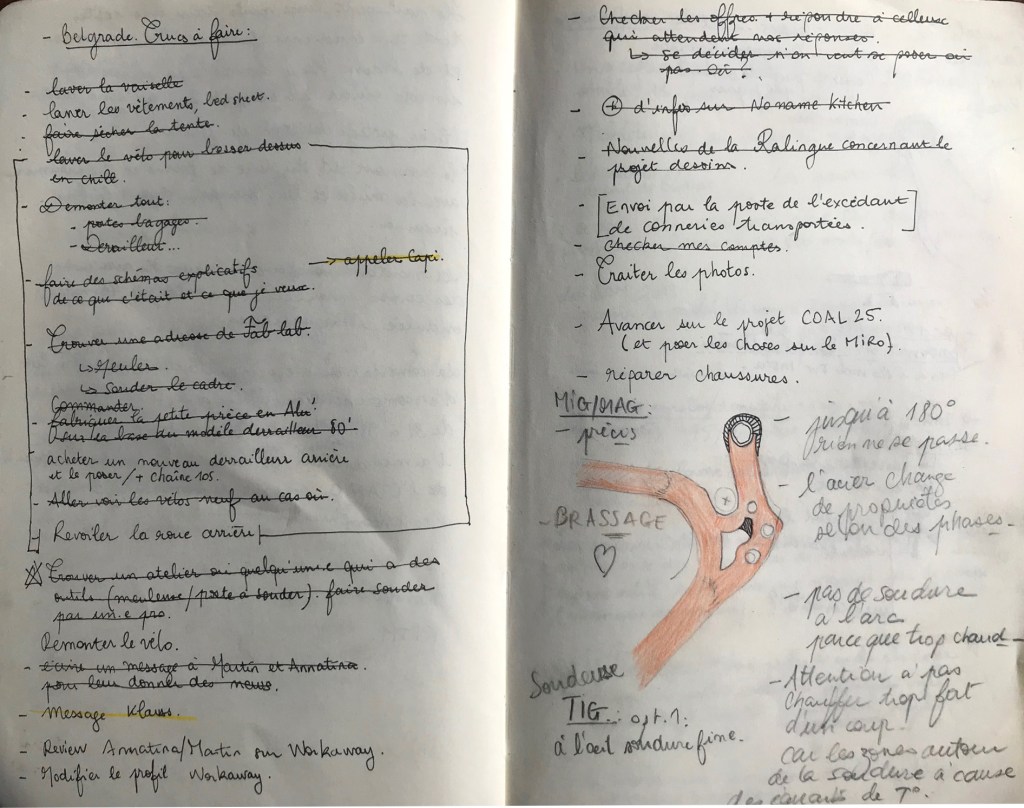 - Belgrade. Trucs à faire:
- laver la vaiselle
- laver les vêtements, bed sheet.
- faire sécher la tente.
- laver le vélo pour bosser dessus
en chill.
- Démonter tout:
- portes bagages.
- Derailleur...
→ appeler Capi.
- faire des schémas explicatifs
de ce que c'était et ce que je veux.
- Trouver une adresse de Fab lab.
↳ Meuler.
↳ souder le cadre.
Commander
- fabriquer la petite pièce en Alu!
sur la base du modèle derrailleur 80'
acheter un nouveau derrailleur arrière
et le poser/+ chaîne 10s.
- Aller voir les vélos neuf au cas où.
Revoiler la roue arrière
Trouver un atelier ou quelqu'un·e qui a des
outils (meuleuse/poste à souder). faire souder
par un·e pro.
Remonter le vélo.
- écrire un message à Martin et Annatina.
pour leur donner des news.
- Message Klauss.
- Review Annatina/Martin sur Workaway.
- Modifier le profil Workaway.
- Checker les offres + répondre à celleux
qui attendent nos réponses.
↳ se décider si on veut se poser où
pas. Où?
- + d'infos sur No name Kitchen
- Nouvelles de la Ralingue concernant le
projet dessins.
- [Envoi par la poste de l'excédant
de conneries transportées.]
- Checker mes comptes.
- Traiter les photos.
- Avancer sur le projet COAL 25.
(et poser les choses sur le MiRo).
- réparer chaussures.
MIG/MAG:
- précis
- jusqu'à 180°
rien ne se passe.
- l'acier change
de propriétés
selon des phases-
- BRASSAGE
- pas de soudure
à l'arc
parce que trop chaud-
- Attention à pas
chauffer trop fort
d'un coup.
car les zones autour
de la soudure à cause
des écarts de T°.
Soudeuse
TIG: opt.1:
à l'œil soudure fine.